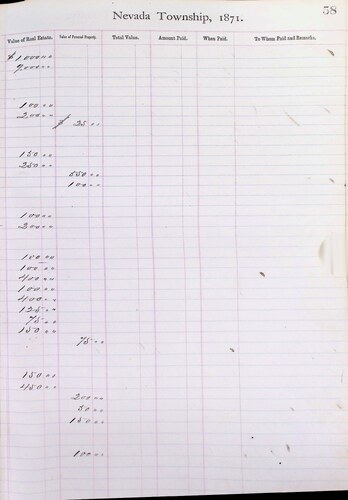 58
Nevada Township, 1871.
Value of Real Estate. Value of Personal Property. Total Value. Amount Paid. When Paid. To Whom Paid and Remarks.
$1,000 00
2,000 00
100 00
200 00
$ 25 00
150 00
250 00
550 00
100 00
100 00
200 00
100 00
100 00
400 00
100 00
400 00
125 00
75 00
150 00
75 00
150 00
450 00
200 00
50 00
150 00
100 00